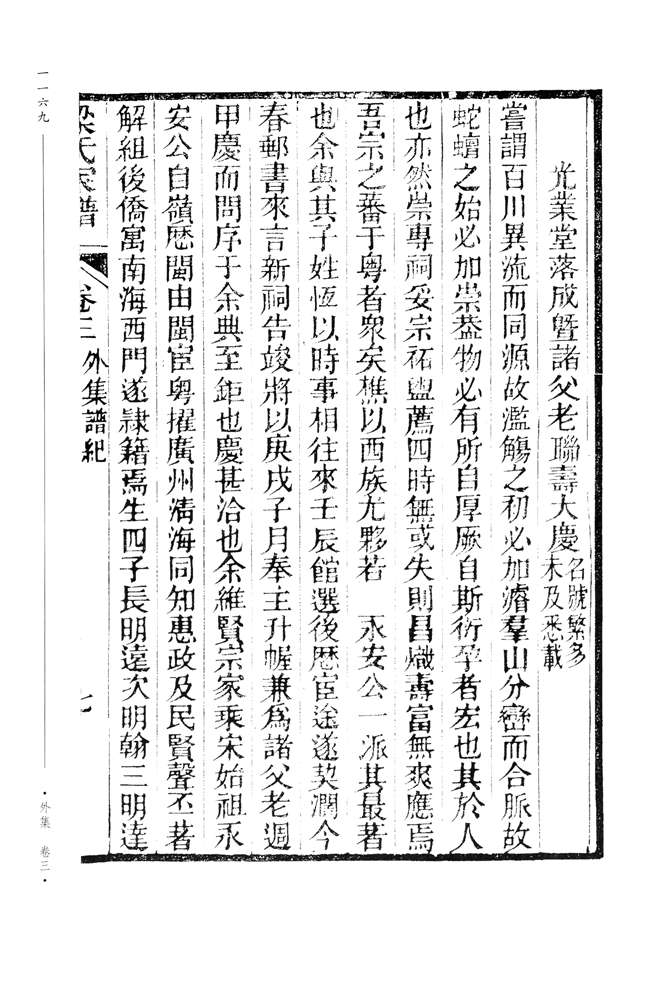 光業堂落成曁諸父老聯壽大慶名號繁多未及悉載
嘗謂百川異流而同源故濫觴之初必加濬羣山分巒而合脈故
蛇蟺之始必加崇葢物必有所自厚厥自斯衍孕者宏也其於人
也亦然崇專祠妥宗祏盥薦四時無或失則昌熾壽富無爽應焉
吾宗之蕃于粤者衆矣樵以西族尤夥若 永安公一派其最著
也余與其子姓恆以時事相往來壬辰館選後歷宦途遂契濶今
春郵書來言新祠告竣將以庚戌子月奉主升幄兼爲諸父老週
甲慶而問序于余典至鉅也慶甚洽也余維賢宗家乘宋始祖永
安公自嶺歷閩由閩宦粤擢廣州淸海同知惠政及民賢聲丕著
解組後僑寓南海西門遂隷籍焉生四子長明遠次明翰三明達
梁氏家譜 卷三 外集譜紀 七
一一六九
·外集 卷三·